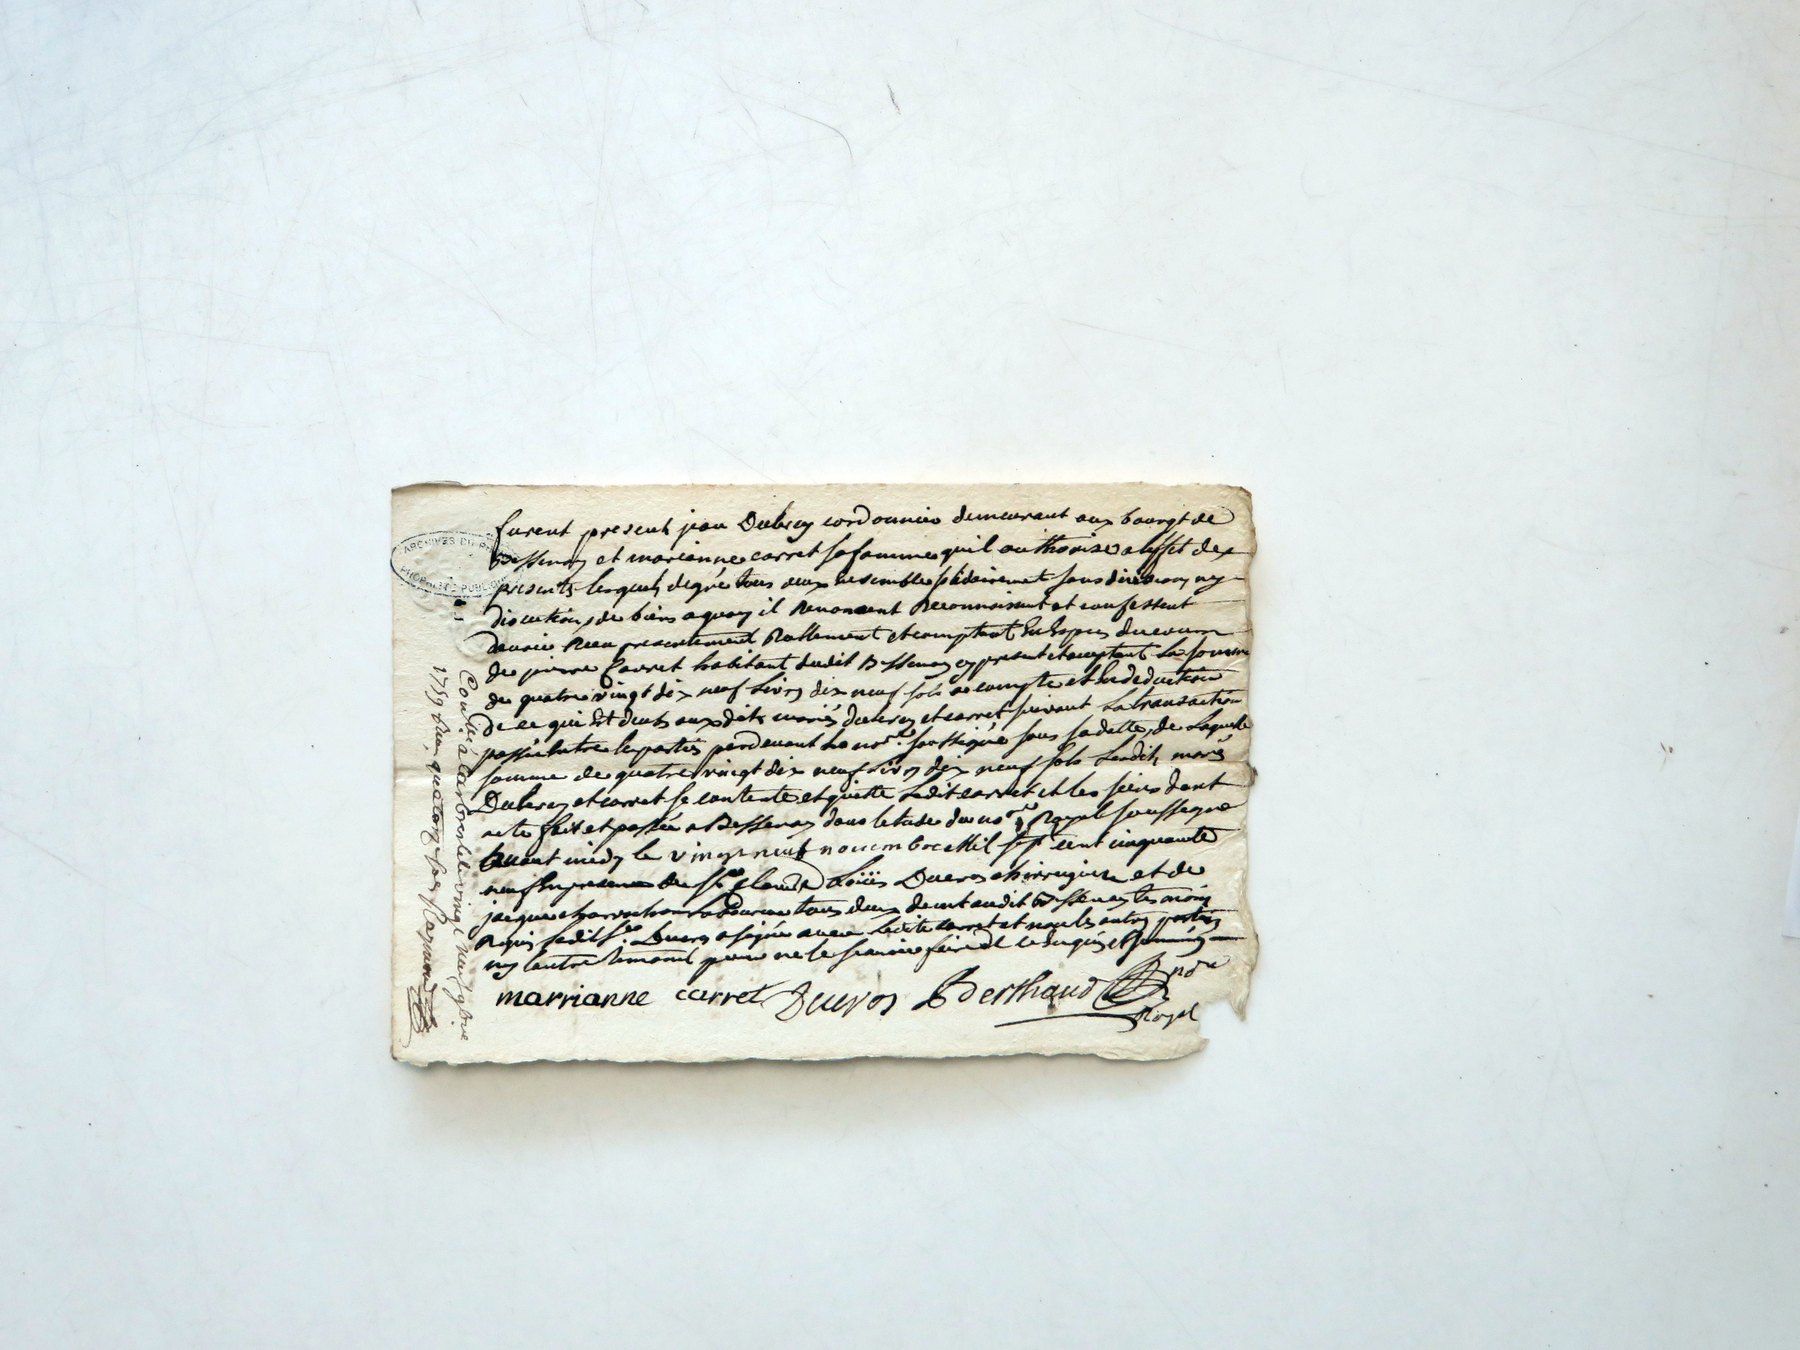 furent present jean Dubrey cordonnier demeurant aux bourgt de
Bessenay et marianne carret sa famme quil authorise a leffet des
presents lesquels de gré tous deux ensemble solidairement sans division ny
discution de biens a quoy il Renoncent Reconnoissent et confessent
davoir Receu presentement Réellement et comptant En Espèces du cours
de pierre Carret habitant dudit Bessenay cy present et acceptant la somme
de quatre vingt dix neuf livres dix neuf sols a compte et En deduction
De ce qui Est deub aux dits mariés dubrey et carret suivant La transaction
passée Entre les parties pardevant le nore. soussigné sous sa datte, de laquelle
somme de quatre vingt dix neuf livres dix neuf sols lesdits mariés
Dubrey et carret se contente et quitte ledit carret et les siens dont
acte fait et passé a Bessenay dans letude du nore Royal soussigné
avant midy le vingt neuf novembre Mil sept cent cinquante
neuf En presence de sr claude Loüis Dueros chirrugien et de
jacque tous deux demt audit Bessenay tesmoins
Requis ledit sr. Dueros a signé avec ladite carret et non les autres parties
ny lautre temoint pour ne le scavoir faire de ce Enquis et sommés
marrianne carret Dueros Berthaud nore
Royal
Conllé à Larbresle le vingt neuf 9bre
1759 Reçu quatorze sols Raymond
ARCHIVES DU
PROPRIÉTÉ PUBLIQUE